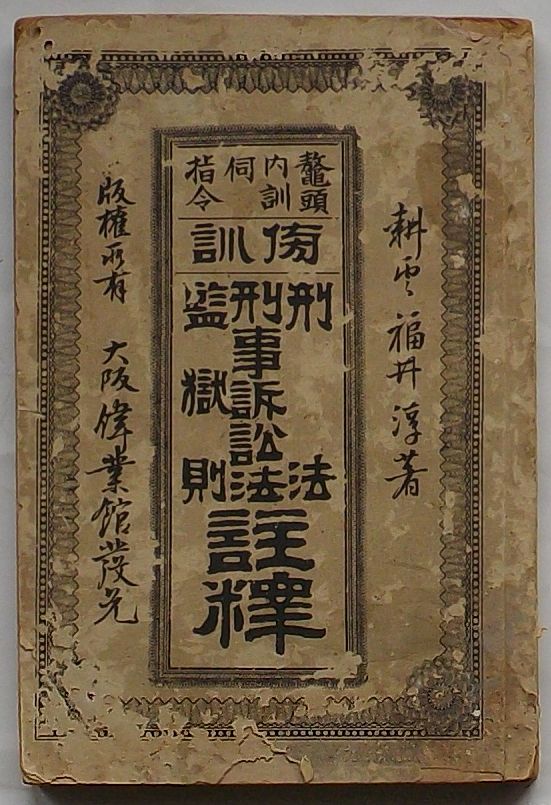 耕雲 福井淳著
鼇頭
内訓
伺
指令
傍訓
刑法
刑事訴訟法
監獄則
註釋
版權所有 大阪偉業館發兌